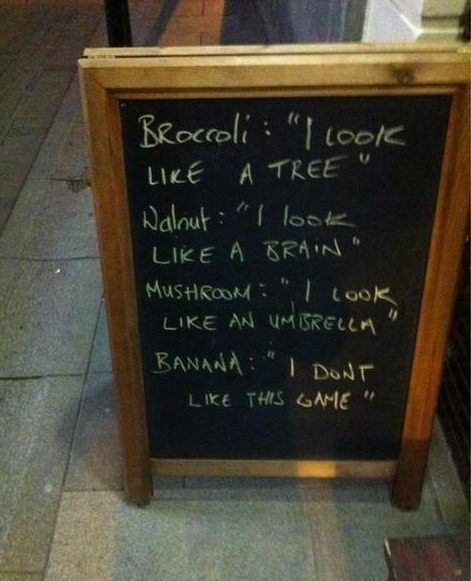 BROCCOLI: "I LOOK
LIKE A TREE"
Walnut: "I look
LIKE A BRAIN"
MUSHROOM: "I LOOK
LIKE AN UMBRELLA"
BANANA: "I DONT
LIKE THIS GAME"